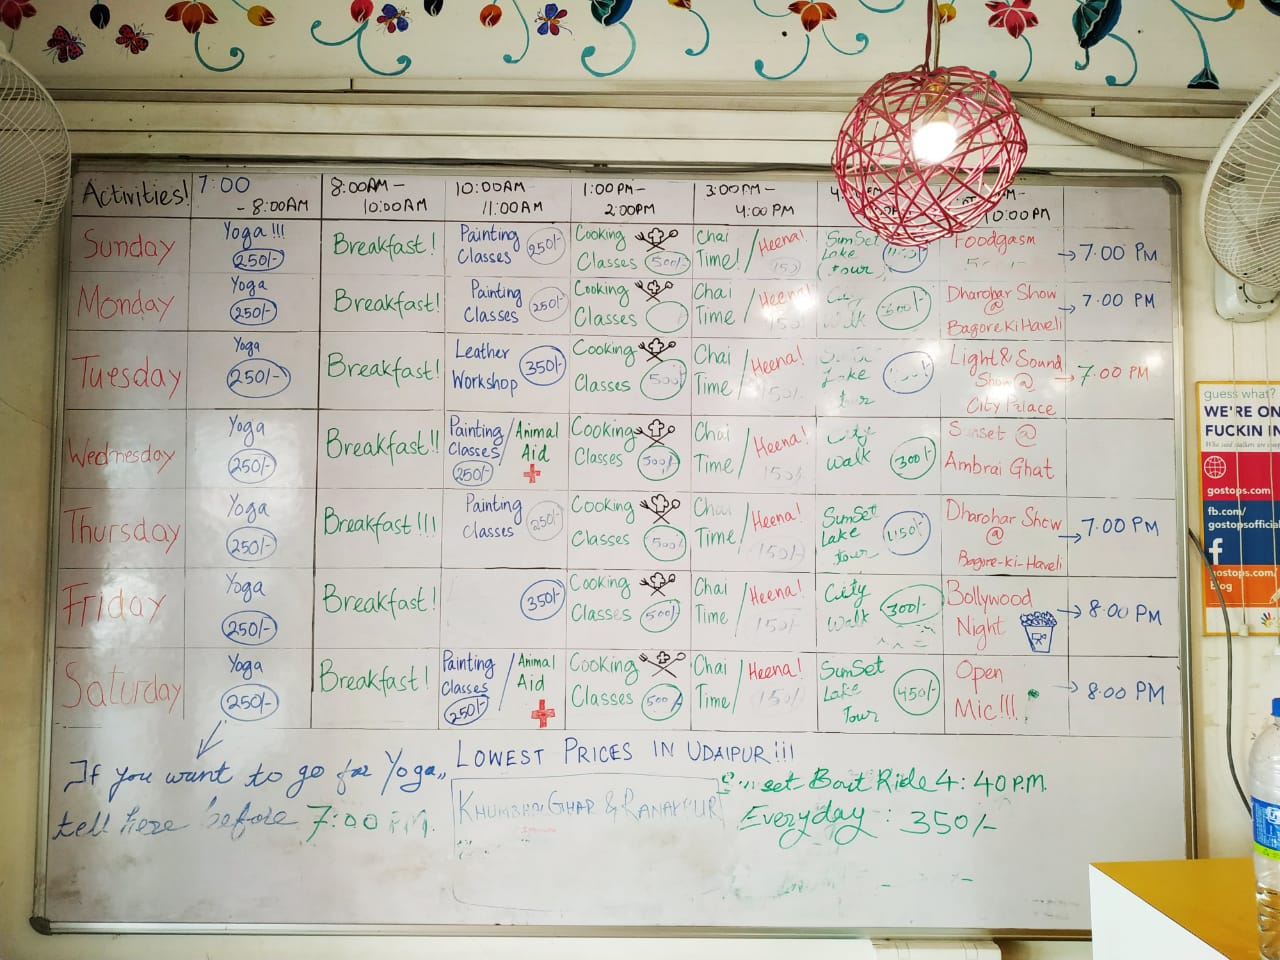 Activities!
7:00
- 8:00AM
8:00AM -
10:00AM
10:00AM
11:00AM
1:00PM -
2:00PM
3:00PM -
4:00 PM
10:00PM
Sunday
Yoga !!!
250/-
Breakfast!
Painting
Classes
250/-
Cooking
Classes
500/-
Chai
Time! / Heena!
150
SunSet
Lake
tour
Foodgasm
→ 7:00 PM
Monday
Yoga
250/-
Breakfast!
Painting
Classes
250/-
Cooking
Classes
Chai
Time / Heena!
150/
City
Walk
300/-
Dharohar Show
@
Bagore Ki Haveli
→ 7:00 PM
Tuesday
Yoga
250/-
Breakfast!
Leather
Workshop
350/-
Cooking
Classes
500/
Chai
Time / Heena!
150/-
Lake
Light & Sound
Show @
City Palace
→ 7:00 PM
Wednesday
Yoga
250/-
Breakfast!!
Painting /
Classes
250/-
Animal
Aid
Cooking
Classes
500/-
Chai
Time / Heena!
150/-
City
Walk
300/-
Sunset @
Ambrai Ghat
Thursday
Yoga
250/-
Breakfast!!!
Painting
Classes
250/-
Cooking
Classes
500/-
Chai
Time / Heena!
150/-
SunSet
Lake
tour
1150/-
Dharohar Show
@
Bagore-ki-Haveli
→ 7:00 PM
Friday
Yoga
250/-
Breakfast!
350/-
Cooking
Classes
500/-
Chai
Time / Heena!
150/-
City
Walk
300/-
Bollywood
Night
→ 8:00 PM
Saturday
Yoga
250/-
Breakfast!
Painting
Classes
250/-
/ Animal
Aid
Cooking
Classes
500/-
Chai
Time / Heena!
150/-
SunSet
Lake
Tour
450/-
Open
Mic!!!
→ 8:00 PM
If you want to go for Yoga,,
tell here before 7:00 P.M.
LOWEST PRICES IN UDAIPUR!!!
& RANAKPUR
Sunset Boat Ride 4:40 P.M.
Everyday : 350/-
guess what?
WE'RE ON
FUCKIN IN
gostops.com
fb.com/
gostopsofficial
gostops.com/
blog